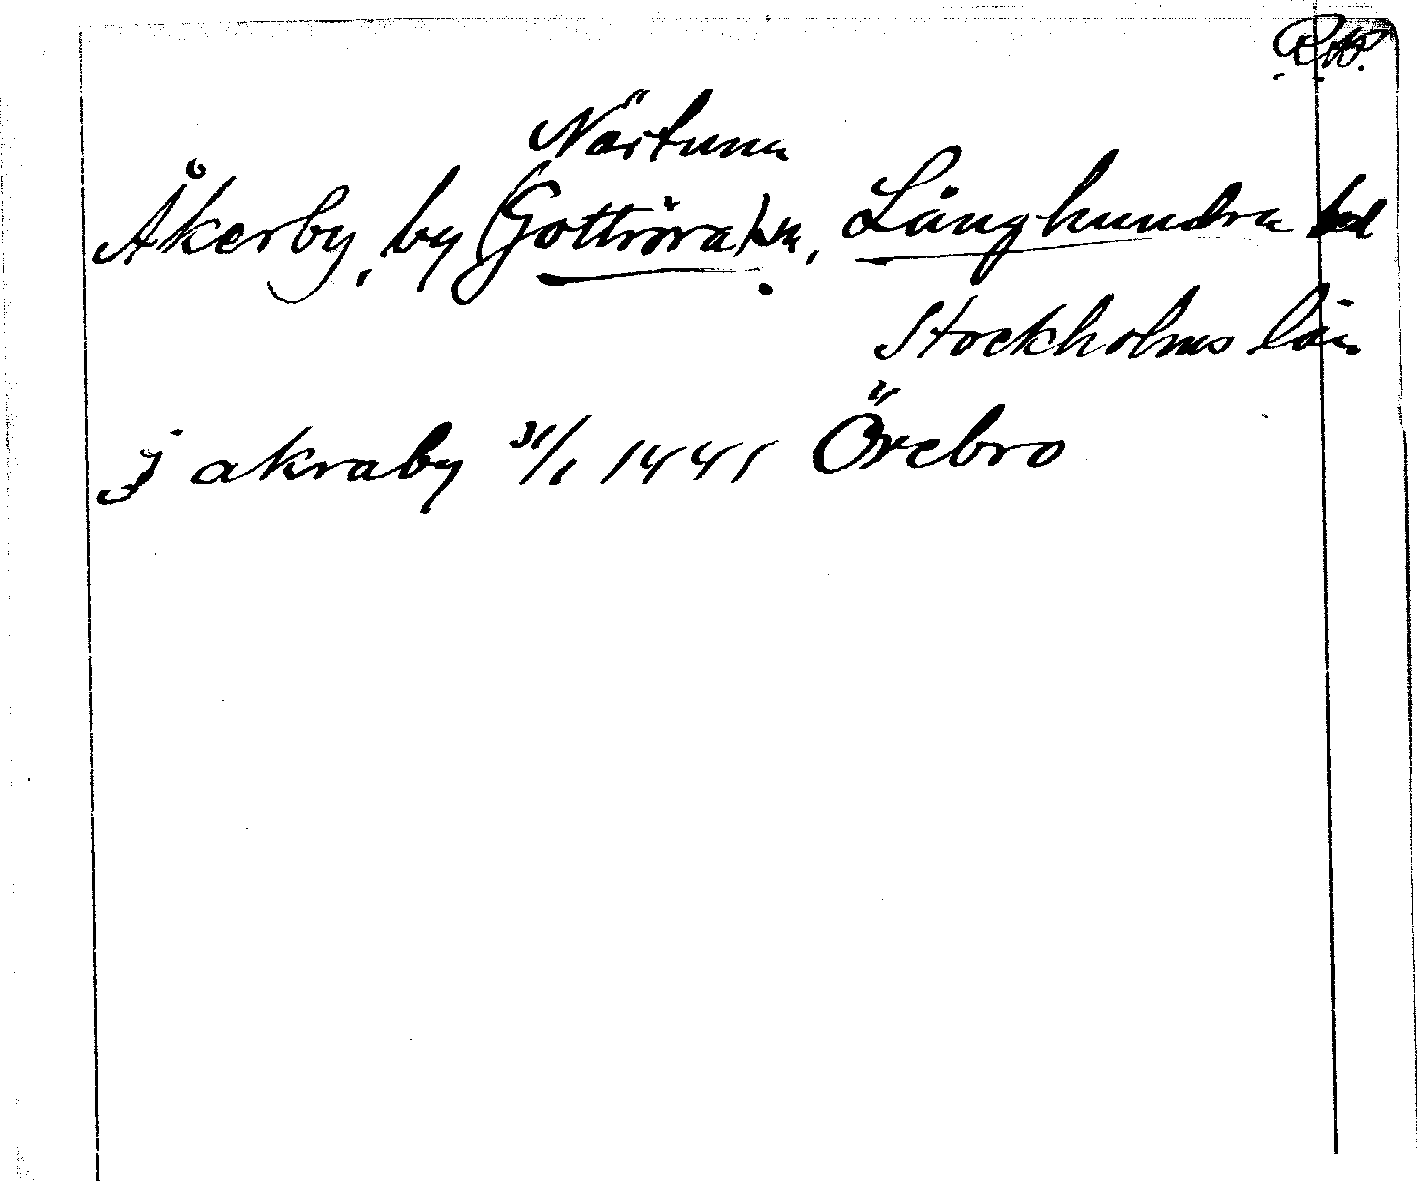 Närtuna
Åkerby, by (Gottröra) sn, Långhundra hd
Stockholms län
j akraby 31/1 1441 Örebro